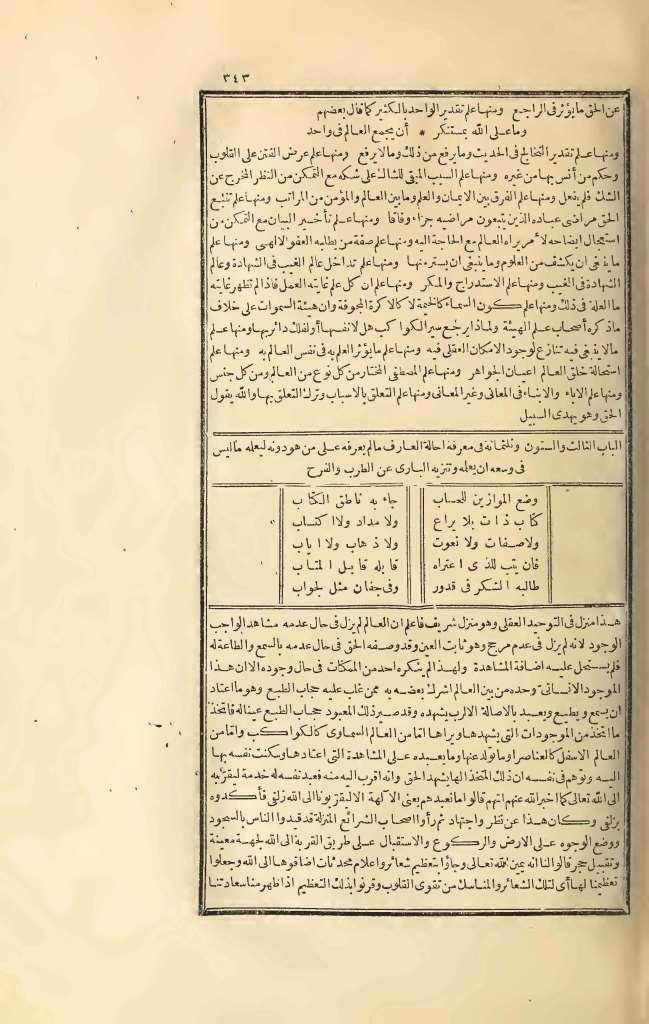 ٣٤٣
عن الحق ما يؤثر فى الراجع ومنها علم تقدير الواحد بالكثير كما قال بعضهم
وما على الله بمستنكر * أن يجمع العالم فى واحد
ومنها علم تقدير النتائج فى الحديث وما يرفع من ذلك وما لا يرفع ومنها علم عرض الفتن على القلوب
وحكم من أنس بها من غيره ومنها علم السبب المبقى للشاك على شكه مع التمكن من النظر المخرج عن
الشك فلم يفعل ومنها علم الفرق بين الايمان والعلم وما بين العالم والمؤمن من المراتب ومنها علم تتبع
الحق مراضى عباده الذين يتبعون مراضيه جزاء وفاقا ومنها علم تأخير البيان مع التمكن من
استعجال ايضاحه لأمر يراه العالم مع الحاجة اليه ومنها علم صفة من يطلبه العفو الالهى ومنها علم
ما ينبغى ان يكشف من العلوم وما ينبغى ان يستر منها ومنها علم تداخل عالم الغيب فى الشهادة وعالم
الشهادة فى الغيب ومنها علم الاستدراج والمكر ومنها علم ان كل علم غايته العمل فاذا لم تظهر غايته
ما العلة فى ذلك ومنها علم كون السماء كالخيمة لا كالاكرة المجوفة وان هيئة السموات على خلاف
ما ذكره أصحاب علم الهيئة ولماذا يرجع سير الكواكب هل لانفسها أو لفلك دائر بها ومنها علم
ما لا ينبغى فيه تنازع لوجود الامكان العقلى فيه ومنها علم ما يؤثر العلم به فى نفس العالم به ومنها علم
استحالة خلق العالم اعيان الجواهر ومنها علم المصطفى المختار من كل نوع من العالم ومن كل جنس
ومنها علم الاباء والابناء فى المعانى وغير المعانى ومنها علم التعلق بالاسباب وترك التعلق بها والله يقول
الحق وهو يهدى السبيل
الباب الثالث والستون وثلثمائة فى معرفة احالة العارف مالم يعرفه على من هو دونه ليعلمه ماليس
فى وسعه ان يعلمه وتنزيه البارى عن الطرب والفرح
وضع الموازين للحساب جاء به ناطق الكتاب
كتاب ذات بلا يراع ولا مداد ولا اكتساب
ولا صفات ولا نعوت ولا ذهاب ولا اياب
فان يتب للذى اعتراه قابله قابل المتاب
طالبه الشكر فى قدور وفى جفان مثل لجواب
هذا منزل فى التوحيد العقلى وهو منزل شريف فاعلم ان العالم لم يزل فى حال عدمه مشاهد الواجب
الوجود لانه لم يزل فى عدم مرجح وهو ثابت العين وقد وصفه الحق فى حال عدمه بالسمع والطاعة له
فلم يستحل عليه اضافة المشاهدة ولهذا لم ينكره احد من الممكنات فى حال وجوده الا ان هذا
الموجود الانسانى وحده من بين العالم اشرك بعضه به ممن غلب عليه حجاب الطبع وهو ما اعتاد
ان يسمع ويطيع ويعبد بالاصالة الا لرب يشهده وقد صير ذلك المعبود حجاب الطبع عينا له فاتخذ
ما اتخذ من الموجودات التى يشهدها ويراها اما من العالم السماوى كالكواكب واما من
العالم الاسفل كالعناصر او ما تولد عنها وما يعبده على المشاهدة التى اعتادها وسكنت نفسه بها
اليه وتوهم فى نفسه ان ذلك المتخذ الها يشهد الحق وانه اقرب اليه منه فعبد نفسه له خدمة ليقربه
الى الله تعالى كما اخبر الله عنهم انهم قالوا ما نعبدهم يعنى الآلهة الا ليقربونا الى الله زلفى فأكدوه
بزلفى وكان هذا عن نظر واجتهاد ثم رأوا اصحاب الشرائع المنزلة قد قيدوا الناس بالسجود
ووضع الوجوه على الارض والركوع والاستقبال على طريق القربة الى الله لجهة معينة
وتقبيل حجر قالوا لنا انه يمين الله تعالى وجاؤا بتعظيم شعائر واعلام محدثات اضافوها الى الله وجعلوا
تعظيمنا لها أى لتلك الشعائر والمناسك من تقوى القلوب وقرنوا بذلك التعظيم اذا ظهر منا سعادتنا